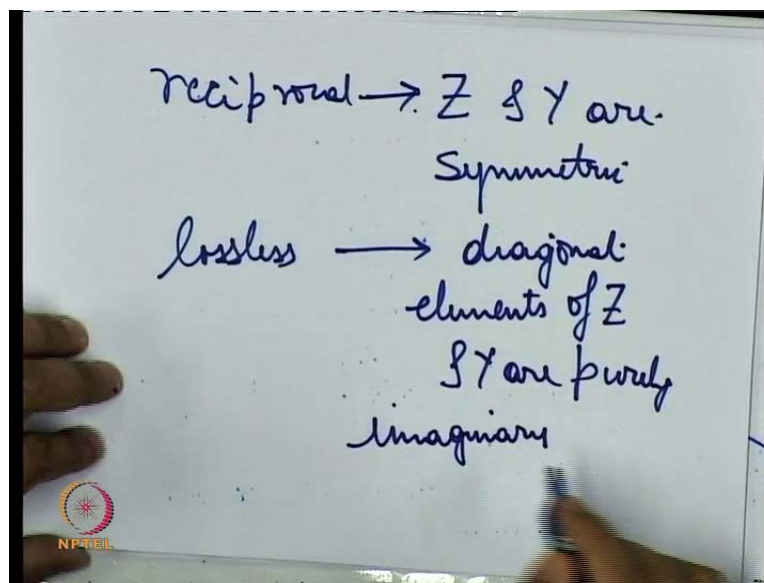 reciprocal → Z & Y are
Symmetric
lossless → diagonal
elements of Z
& Y are purely
imaginary
NPTEL